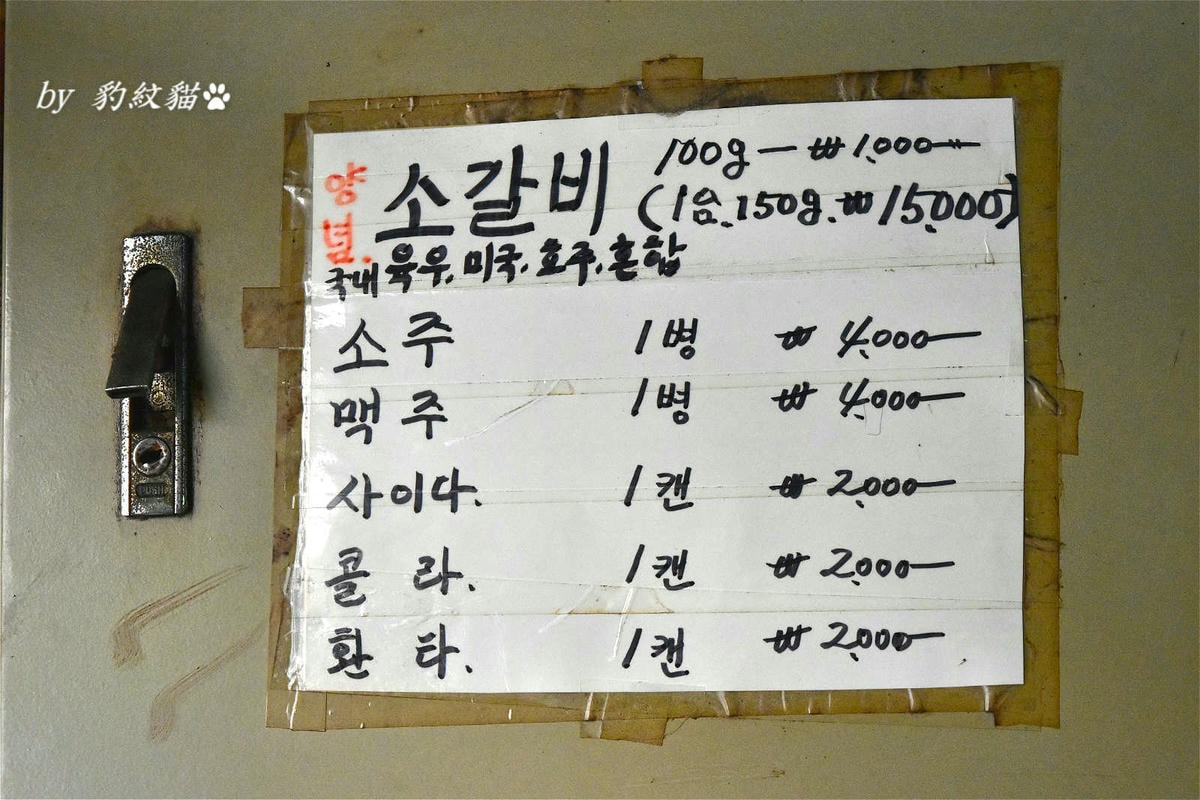 by 豹紋貓
양념 소갈비 100g — ₩1,000
(1숨. 150g. ₩15,000)
국내 육우, 미국, 호주, 혼합
소주 1병 ₩ 4,000
맥주 1병 ₩ 4,000
사이다. 1캔 ₩ 2,000
콜라. 1캔 ₩ 2,000
환타. 1캔 ₩ 2,000
PUSH